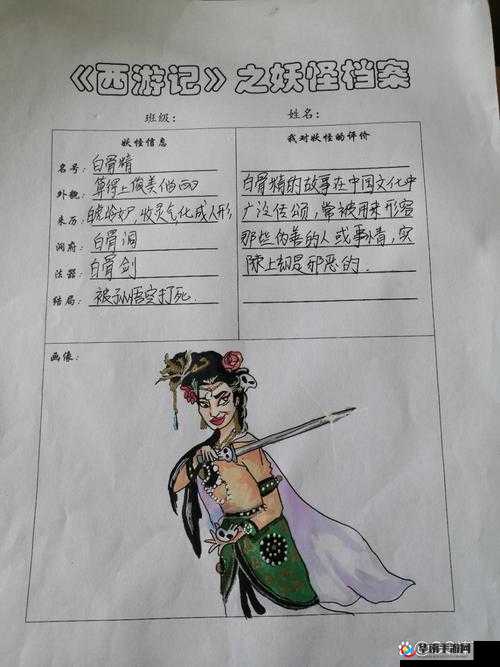 《西游记》之妖怪档案
班级： 姓名：
妖怪信息
名号：白骨精
外貌：算得上俊美
来历： 收灵气化成人形
洞府：白骨洞
法器：白骨剑
结局：被孙悟空打死.
我对妖怪的评价
白骨精的故事在中国文化中
广泛传颂,常被用来形容
那些伪善的人或事情,实
际上却是邪恶的.
画像：
华南手游网